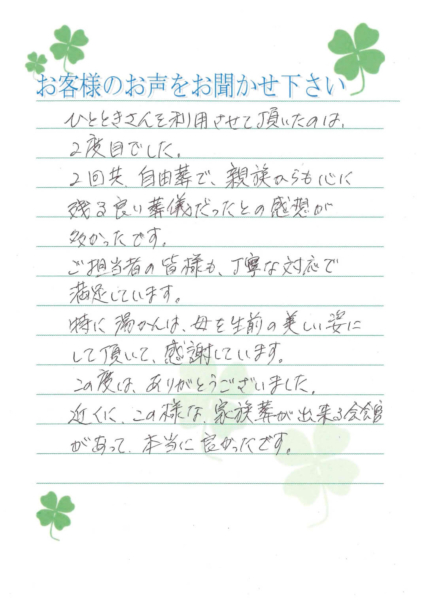 お客様のお声をお聞かせ下さい
ひとときさんを利用させて頂いたのは、
2度目でした。
2回共、自由葬で、親族からも心に
残る良い葬儀だったとの感想が
多かったです。
ご担当者の皆様も、丁寧な対応で
満足しています。
特に湯かんは、母を生前の美しい姿に
して頂いて、感謝しています。
この度は、ありがとうございました。
近くに、この様な、家族葬が出来る会館
があって、本当に良かったです。